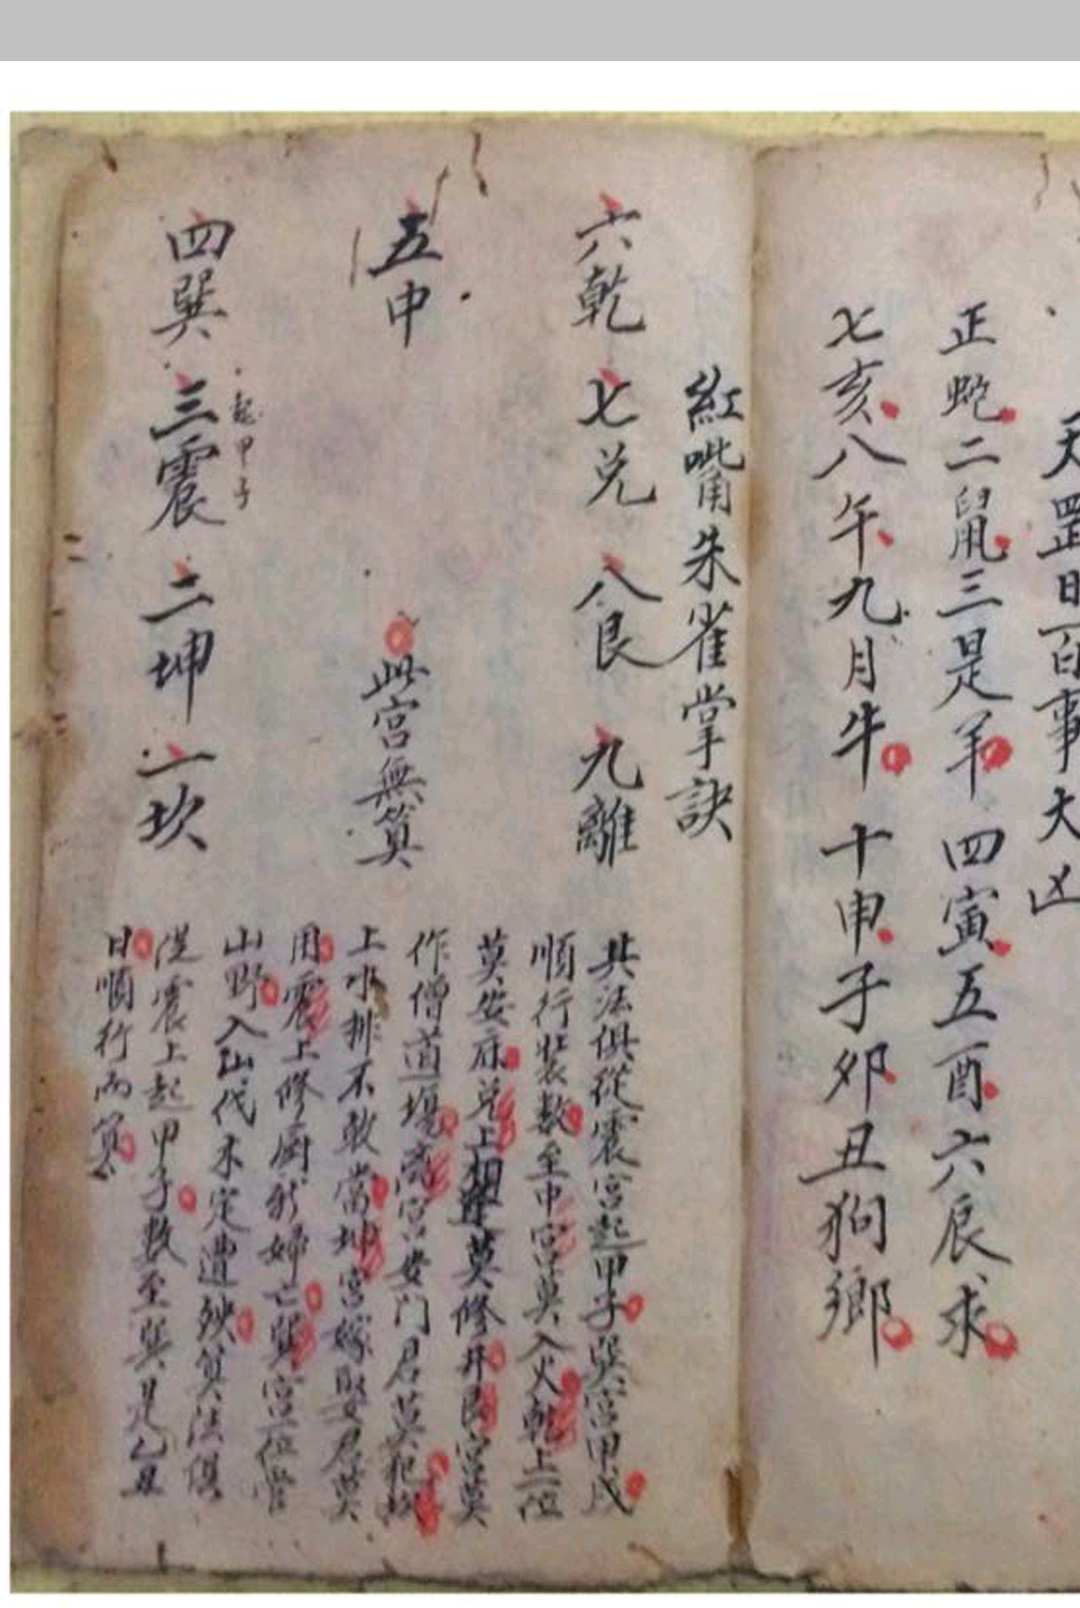 天罡日百事大凶
正蛇二鼠三是羊四寅五酉六辰求
七亥八午九月牛十申子夘丑狗鄉
紅嘴朱雀掌訣
六乾 七兌 八艮 九離
五中
此宮無算
四巽 三震 二坤 一坎
起甲子
其法俱從震宮起甲子巽宮甲戌
順行裝數至中宮莫入火乾上一位
莫安床兌上相逢莫修井艮宮莫
作僧道場离宮安门君莫犯坎
上水排不敢當坤宮嫁娶君莫
用震上修廚新婦亡巽宮一位管
山野入山伐木定遭殃算法俱
從震上起甲子數至巽是乙丑
日順行而算